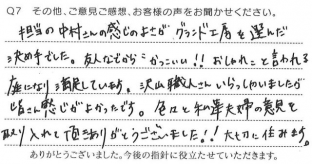 Q7 その他、ご意見ご感想、お客様の声をお聞かせください。
担当の中村さんの感じのよさが グランド工房を選んだ
決め手でした。友人などからかっこいい!! おしゃれ〜と言われる
座になり満足しています。沢山職人さんいらっしゃいましたが
皆さん感じがよかったです。色々と私達夫婦の意見を
取り入れて頂きありがとうございました!! 大切に住みます。
ありがとうございました。今後の指針に役立たせていただきます。